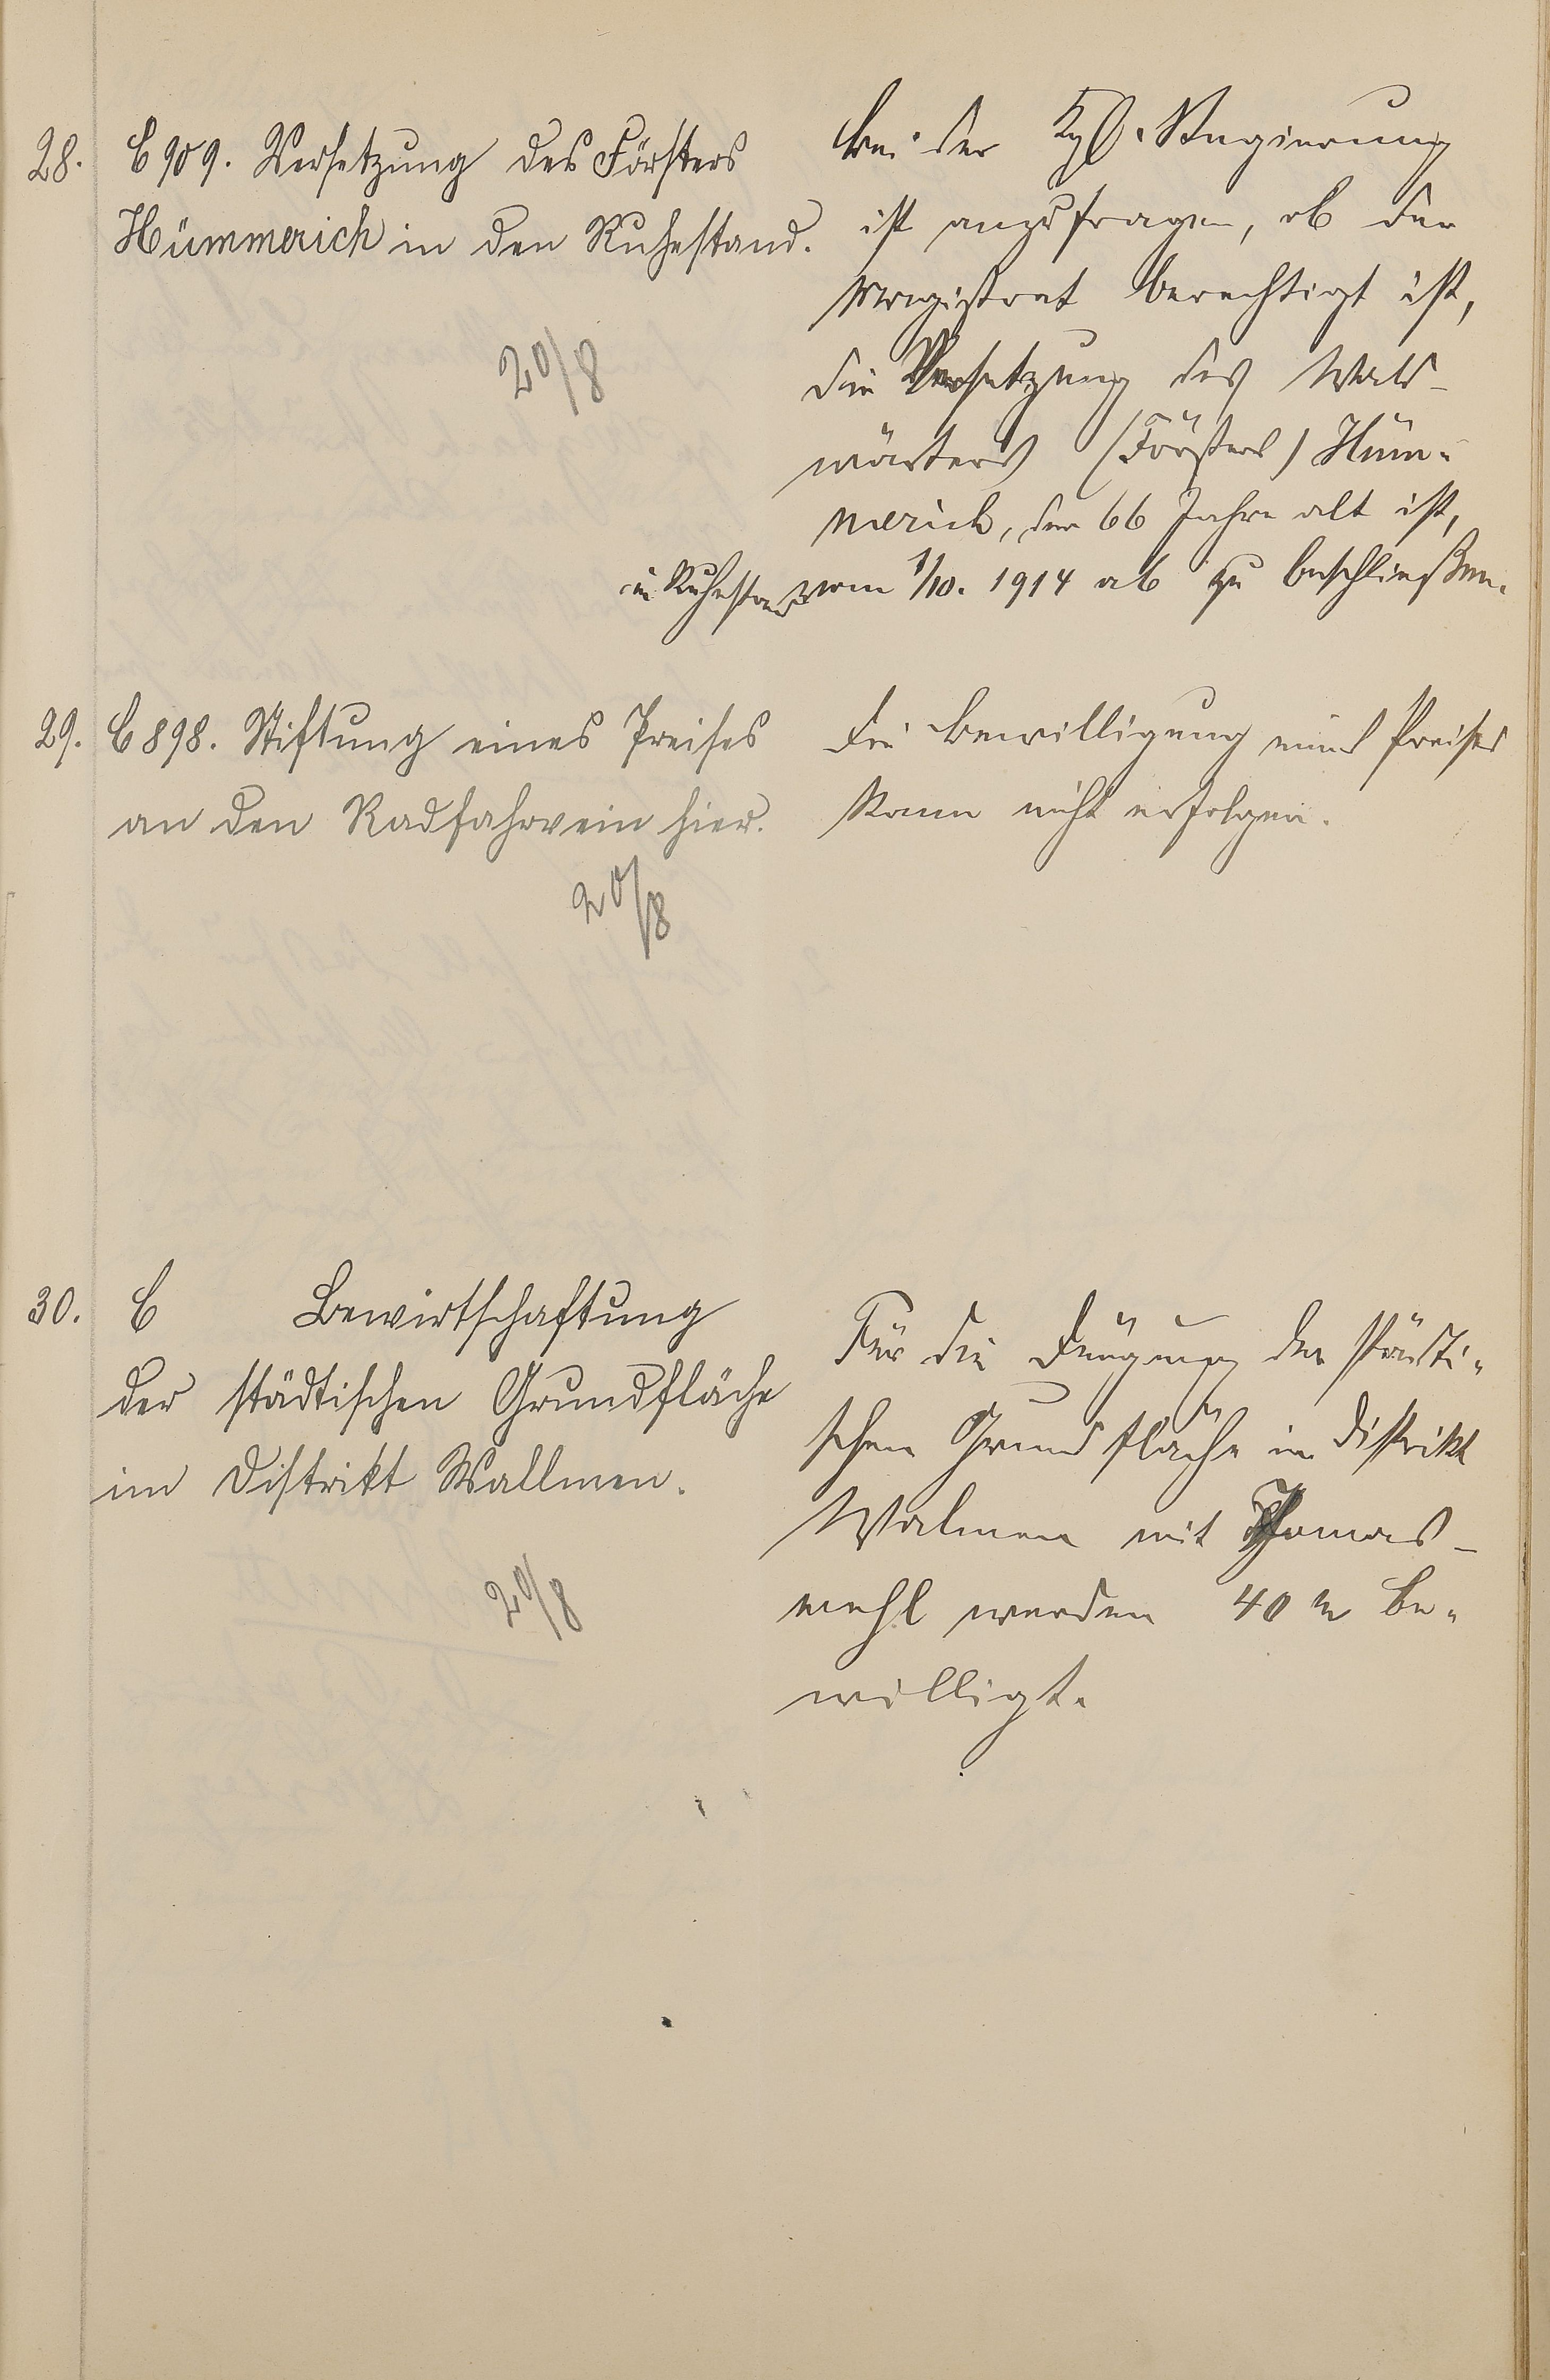 28. C 909. Versetzung des Försters
Hümmerich in den Ruhestand.
20/8
Bei der Kgl. Regierung
ist anzufragen, ob der
Magistrat berechtigt ist,
die Versetzung des Wald-
wärters (Försters) Hüm-
merich, der 66 Jahre alt ist,
in Ruhestand vom 1/10. 1914 ab zu beschließen.
29. C 898. Stiftung eines Preises
an den Radfahrverein hier.
20/8
Die Bewilligung eines Preises
kann nicht erfolgen.
30. C Bewirtschaftung
der städtischen Grundfläche
im Distrikt Wallmen.
20/8
Für die Düngung der städti-
schen Grundfläche im Distrikt
Walmen mit Thomas-
mehl werden 40 M be-
willigt.